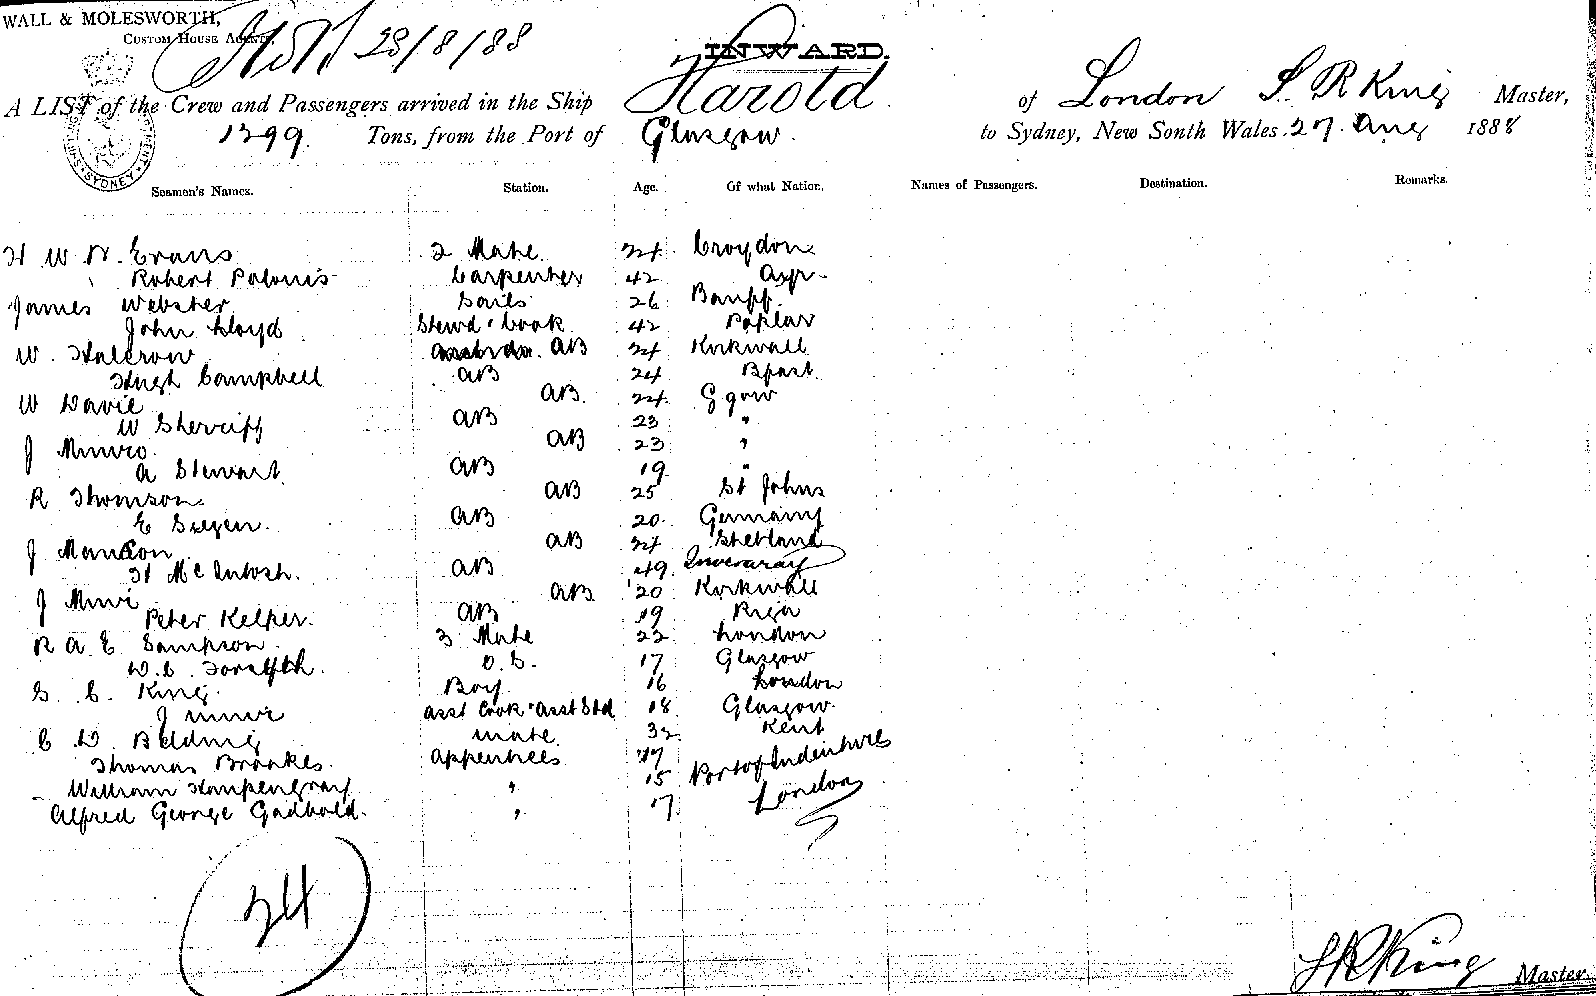 WALL & MOLESWORTH,
CUSTOM HOUSE AGENTS,
28/8/88
INWARD.
A LIST of the Crew and Passengers arrived in the Ship Harold of London S. R King Master,
1399 Tons, from the Port of Glasgow. to Sydney, New South Wales. 27. Aug 1888
SYDNEY
Seamen's Names. Station. Age. Of what Nation. Names of Passengers. Destination. Remarks.
H W N. Evans 2 Mate. 24 Croydon
Robert Carpenter 42 Ayr
James Webster Sails 26 Banff
John Lloyd Stewd & Cook 42 Poplar
W. Halcrow AB 24 Kirkwall
Hugh Campbell AB 24 Bfast
W Davie AB 24 Ggow
W Sherriff AB 23 "
J Munro AB 23 "
A Stewart AB 19 "
R Thomson AB 25 St Johns
E AB 20 Germany
J AB 24 Shetland
H McIntosh. AB 49 Inveraray
J AB 20 Kirkwall
Peter Kelper. AB 19 Riga
R A E Sampson 3 Mate 22 London
W. C. Forsyth. O. S. 17 Glasgow
S. C. King Boy 16 London
J Asst Cook & Asst Std 18 Glasgow
C W Mate 32 Kent
Thomas Brookes Apprentices 17 Port of Indentures
William 15 London
Alfred George Gadbold. " 17
24
S R King Master.